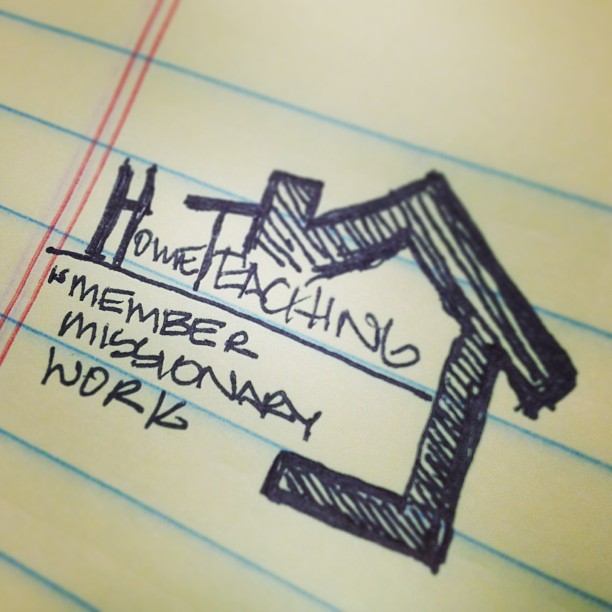 HOME TEACHING
is MEMBER
MISSIONARY
WORK